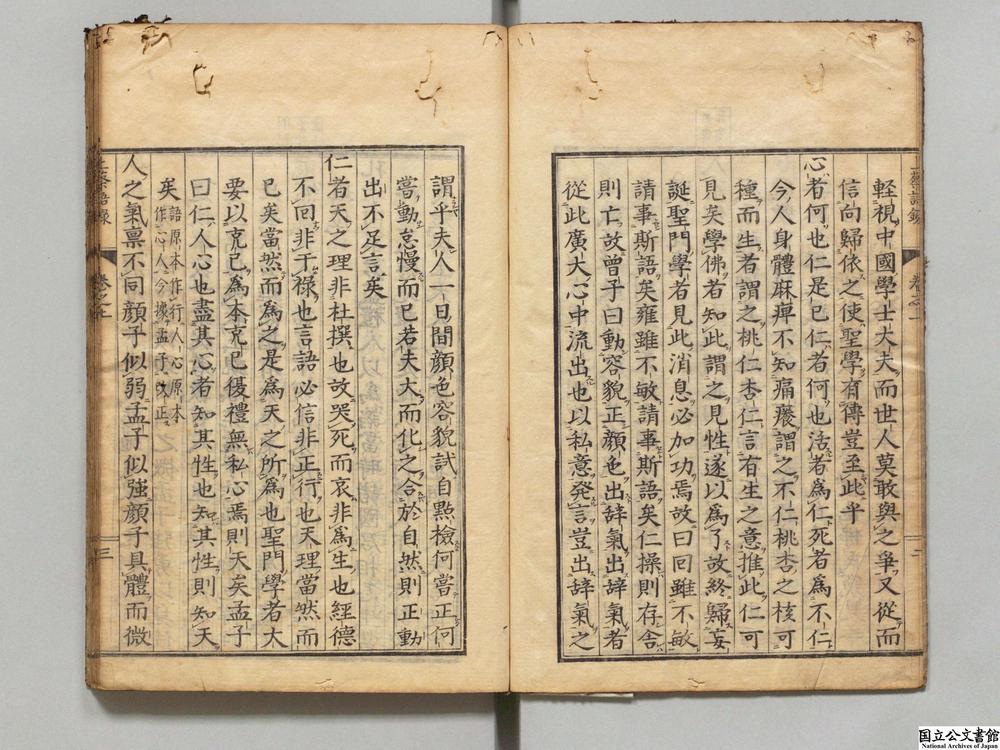 輕視中國學士大夫而世人莫敢與之爭又從而
信向歸依之使聖學有傳豈至此乎
心者何也仁是已仁者何也活者為仁死者為不仁
今人身體麻痺不知痛癢謂之不仁桃杏之核可
種而生者謂之桃仁杏仁言有生之意推此仁可
見矣學佛者知此謂之見性遂以為了故終歸妄
誕聖門學者見此消息必加功焉故曰回雖不敏
請事斯語矣雍雖不敏請事斯語矣仁操則存舍
則亡故曾子曰動容貌正顏色出辭氣出辭氣者
從此廣大心中流出也以私意發言豈出辭氣之
上蔡語錄
卷之上
三
謂乎夫人一日間顏色容貌試自點檢何嘗正何
嘗動怠慢而已若夫大而化之合於自然則正動
出不足言矣
仁者天之理非杜撰也故哭死而哀非為生也經德
不回非干祿也言語必信非正行也天理當然而
已矣當然而為之是為天之所為也聖門學者大
要以克己為本克己復禮無私心焉則天矣孟子
曰仁人心也盡其心者知其性也知其性則知天
矣
語原本作行人心原本
作心人今據孟子改正
人之氣稟不同顏子似弱孟子似強顏子具體而微
上蔡語錄
卷之上
三
国立公文書館
National Archives of Japan